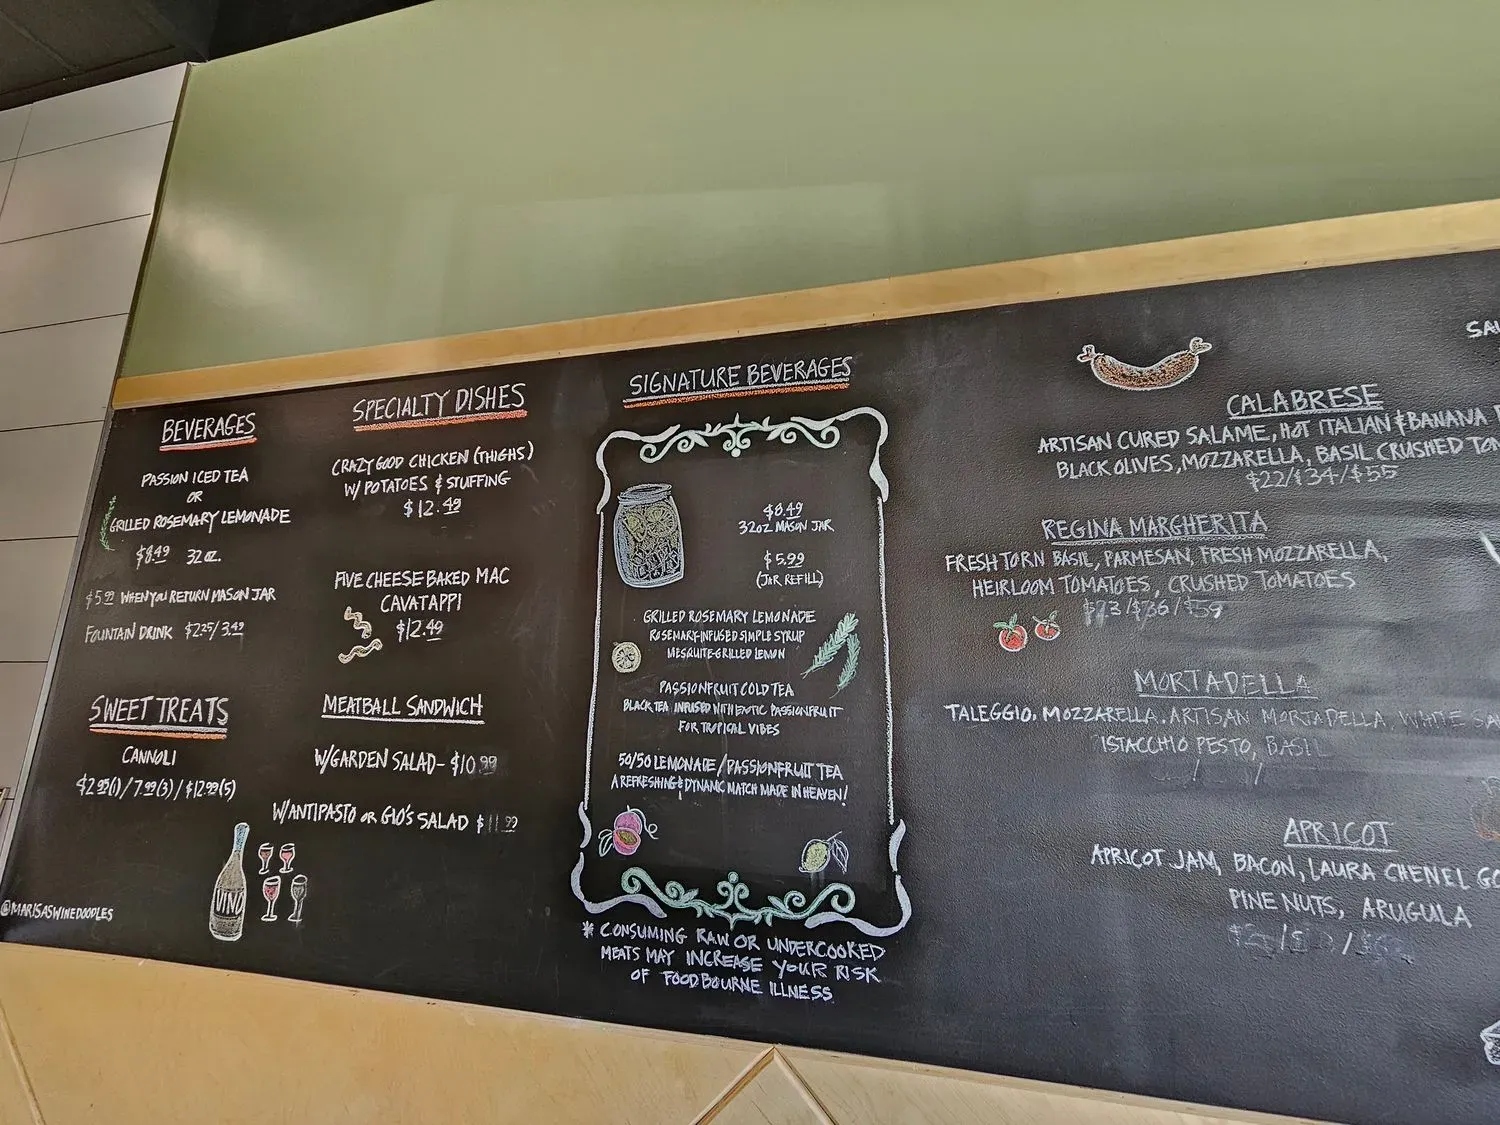 BEVERAGES
PASSION ICED TEA
OR
GRILLED ROSEMARY LEMONADE
$8.49 32 OZ.
$5.99 WHEN YOU RETURN MASON JAR
FOUNTAIN DRINK $2.25/3.49
SWEET TREATS
CANNOLI
$2.99(1)/7.99(3)/$12.99(5)
VINO
@MARISASWINEDOODLES
SPECIALTY DISHES
CRAZY GOOD CHICKEN (THIGHS)
W/ POTATOES & STUFFING
$12.49
FIVE CHEESE BAKED MAC
CAVATAPPI
$12.49
MEATBALL SANDWICH
W/GARDEN SALAD- $10.99
W/ANTIPASTO OR GIO'S SALAD $11.99
SIGNATURE BEVERAGES
$8.49
32OZ MASON JAR
$5.99
(JAR REFILL)
GRILLED ROSEMARY LEMONADE
ROSEMARY-INFUSED SIMPLE SYRUP
MESQUITE-GRILLED LEMON
PASSIONFRUIT COLD TEA
BLACK TEA INFUSED WITH EXOTIC PASSIONFRUIT
FOR TROPICAL VIBES
50/50 LEMONADE/PASSIONFRUIT TEA
A REFRESHING & DYNAMIC MATCH MADE IN HEAVEN!
* CONSUMING RAW OR UNDERCOOKED
MEATS MAY INCREASE YOUR RISK
OF FOODBOURNE ILLNESS
CALABRESE
ARTISAN CURED SALAME, HOT ITALIAN & BANANA
BLACK OLIVES, MOZZARELLA, BASIL CRUSHED TOM
$22/$34/$55
REGINA MARGHERITA
FRESH TORN BASIL, PARMESAN, FRESH MOZZARELLA,
HEIRLOOM TOMATOES, CRUSHED TOMATOES
$23/$36/$59
MORTADELLA
TALEGGIO, MOZZARELLA, ARTISAN MORTADELLA, WHITE SA
ISTACCHIO PESTO, BASIL
APRICOT
APRICOT JAM, BACON, LAURA CHENEL GO
PINE NUTS, ARUGULA